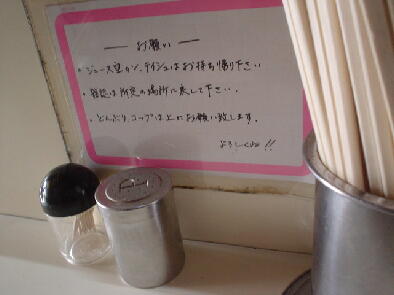 お願い
・ジュース空カン、ティシュはお持ち帰り下さい
・雑誌は所定の場所に戻して下さい。
・どんぶり、コップは上にお願い致します。
よろしくね!!
P